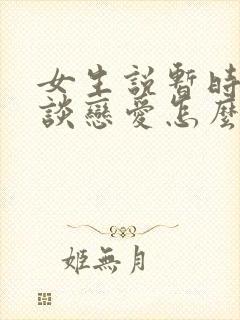 女生說暫時
談戀愛怎麼
姬無月